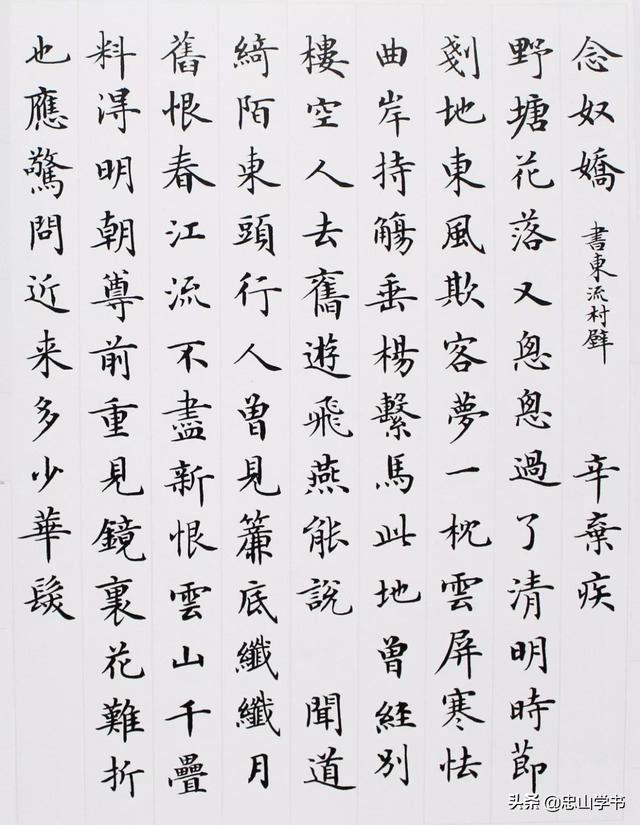 念奴嬌 書東流村壁 辛棄疾
野塘花落又怱怱過了清明時節
剗地東風欺客夢一枕雲屏寒怯
曲岸持觴垂楊繫馬此地曾經別
樓空人去舊遊飛燕能說 聞道
綺陌東頭行人曾見簾底纖纖月
舊恨春江流不盡新恨雲山千疊
料得明朝尊前重見鏡裏花難折
也應驚問近来多少華髮
头条 @忠山学书